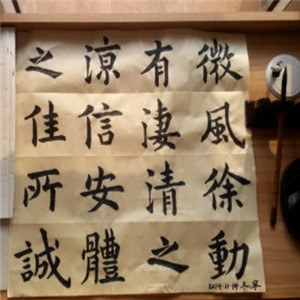 微風徐動
有淒清之
涼信安體
之佳所誠